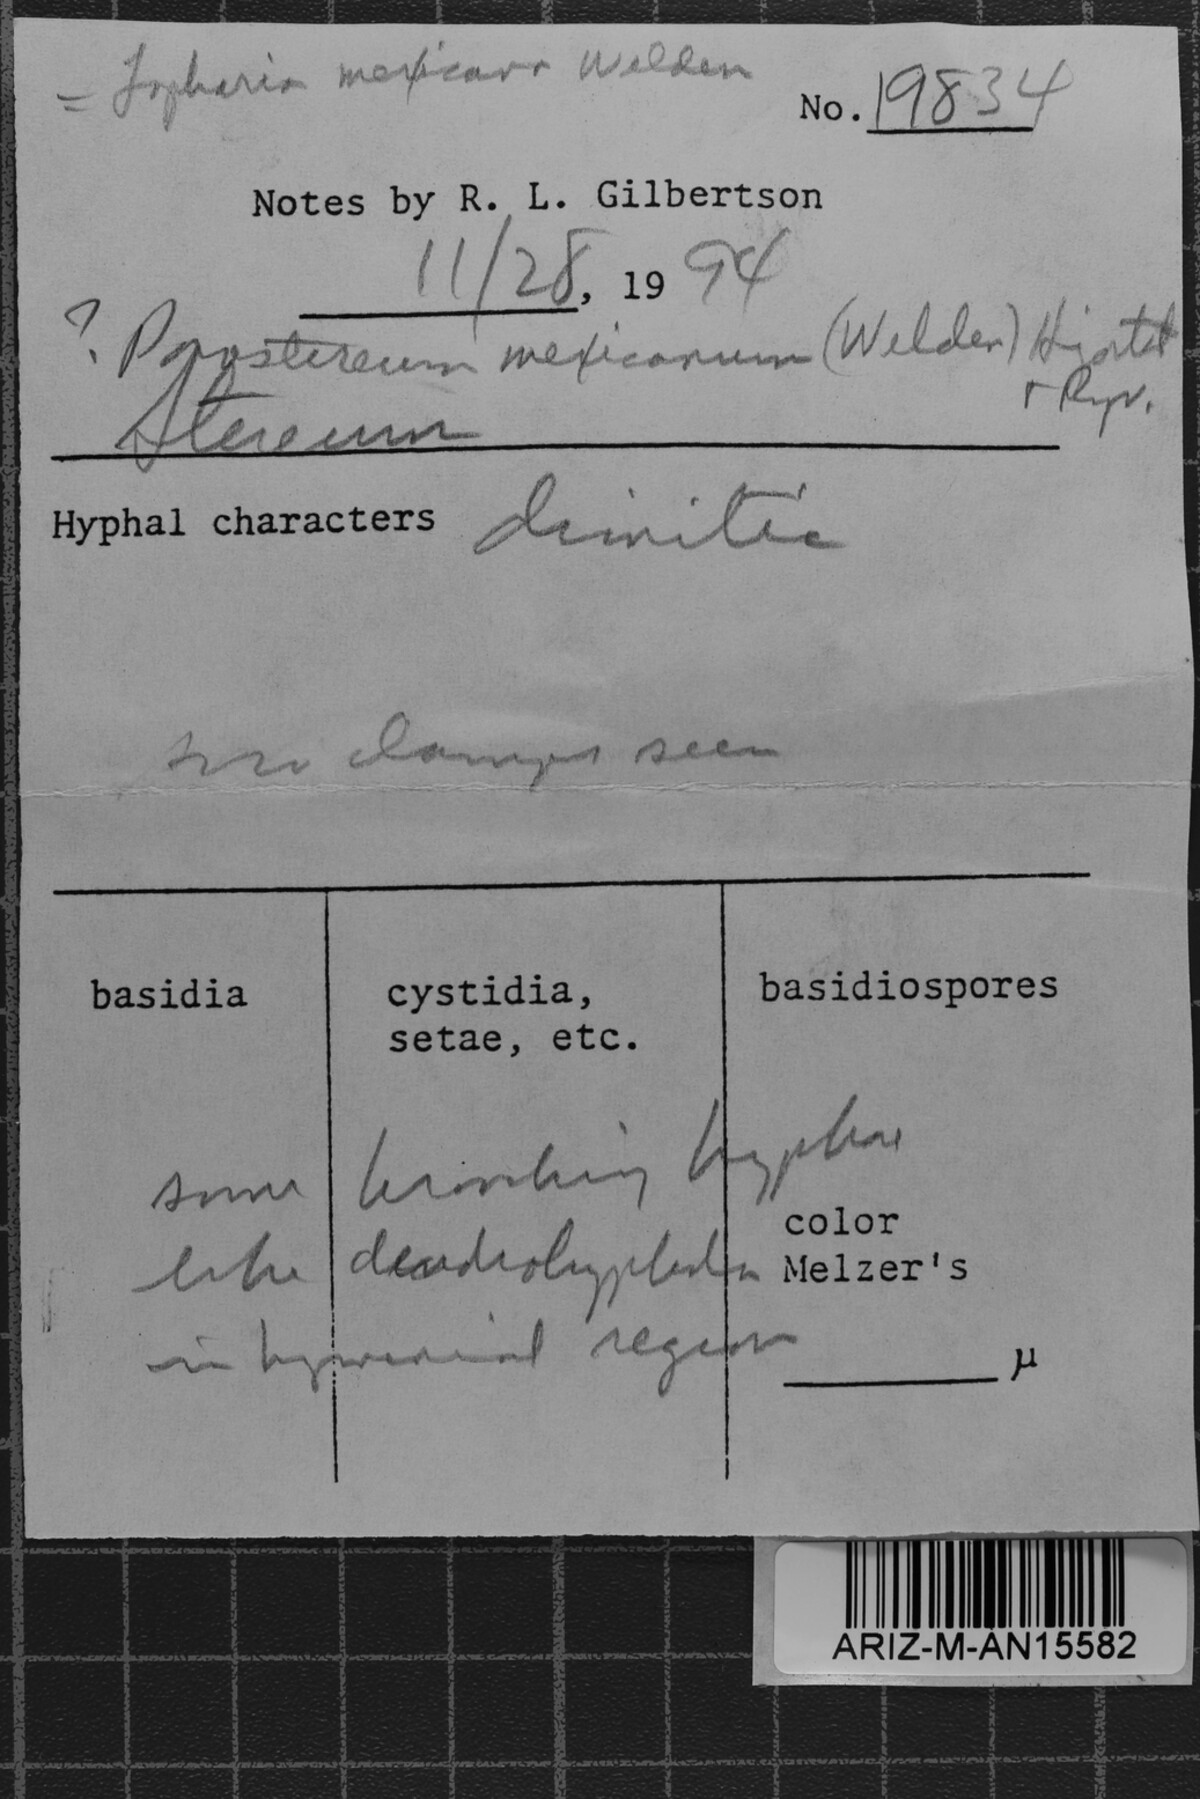 = Lopharia mexicana Welden
No. 19834
Notes by R. L. Gilbertson
11/28, 1994
? Porostereum mexicanum (Welden) Hjortst
+ Ryv.
Stereum
Hyphal characters dimitic
no clamps seen
basidia
cystidia,
setae, etc.
basidiospores
some branching hyphae
like dendrohyphidia
in hymenial region
color
Melzer's
µ
ARIZ-M-AN15582